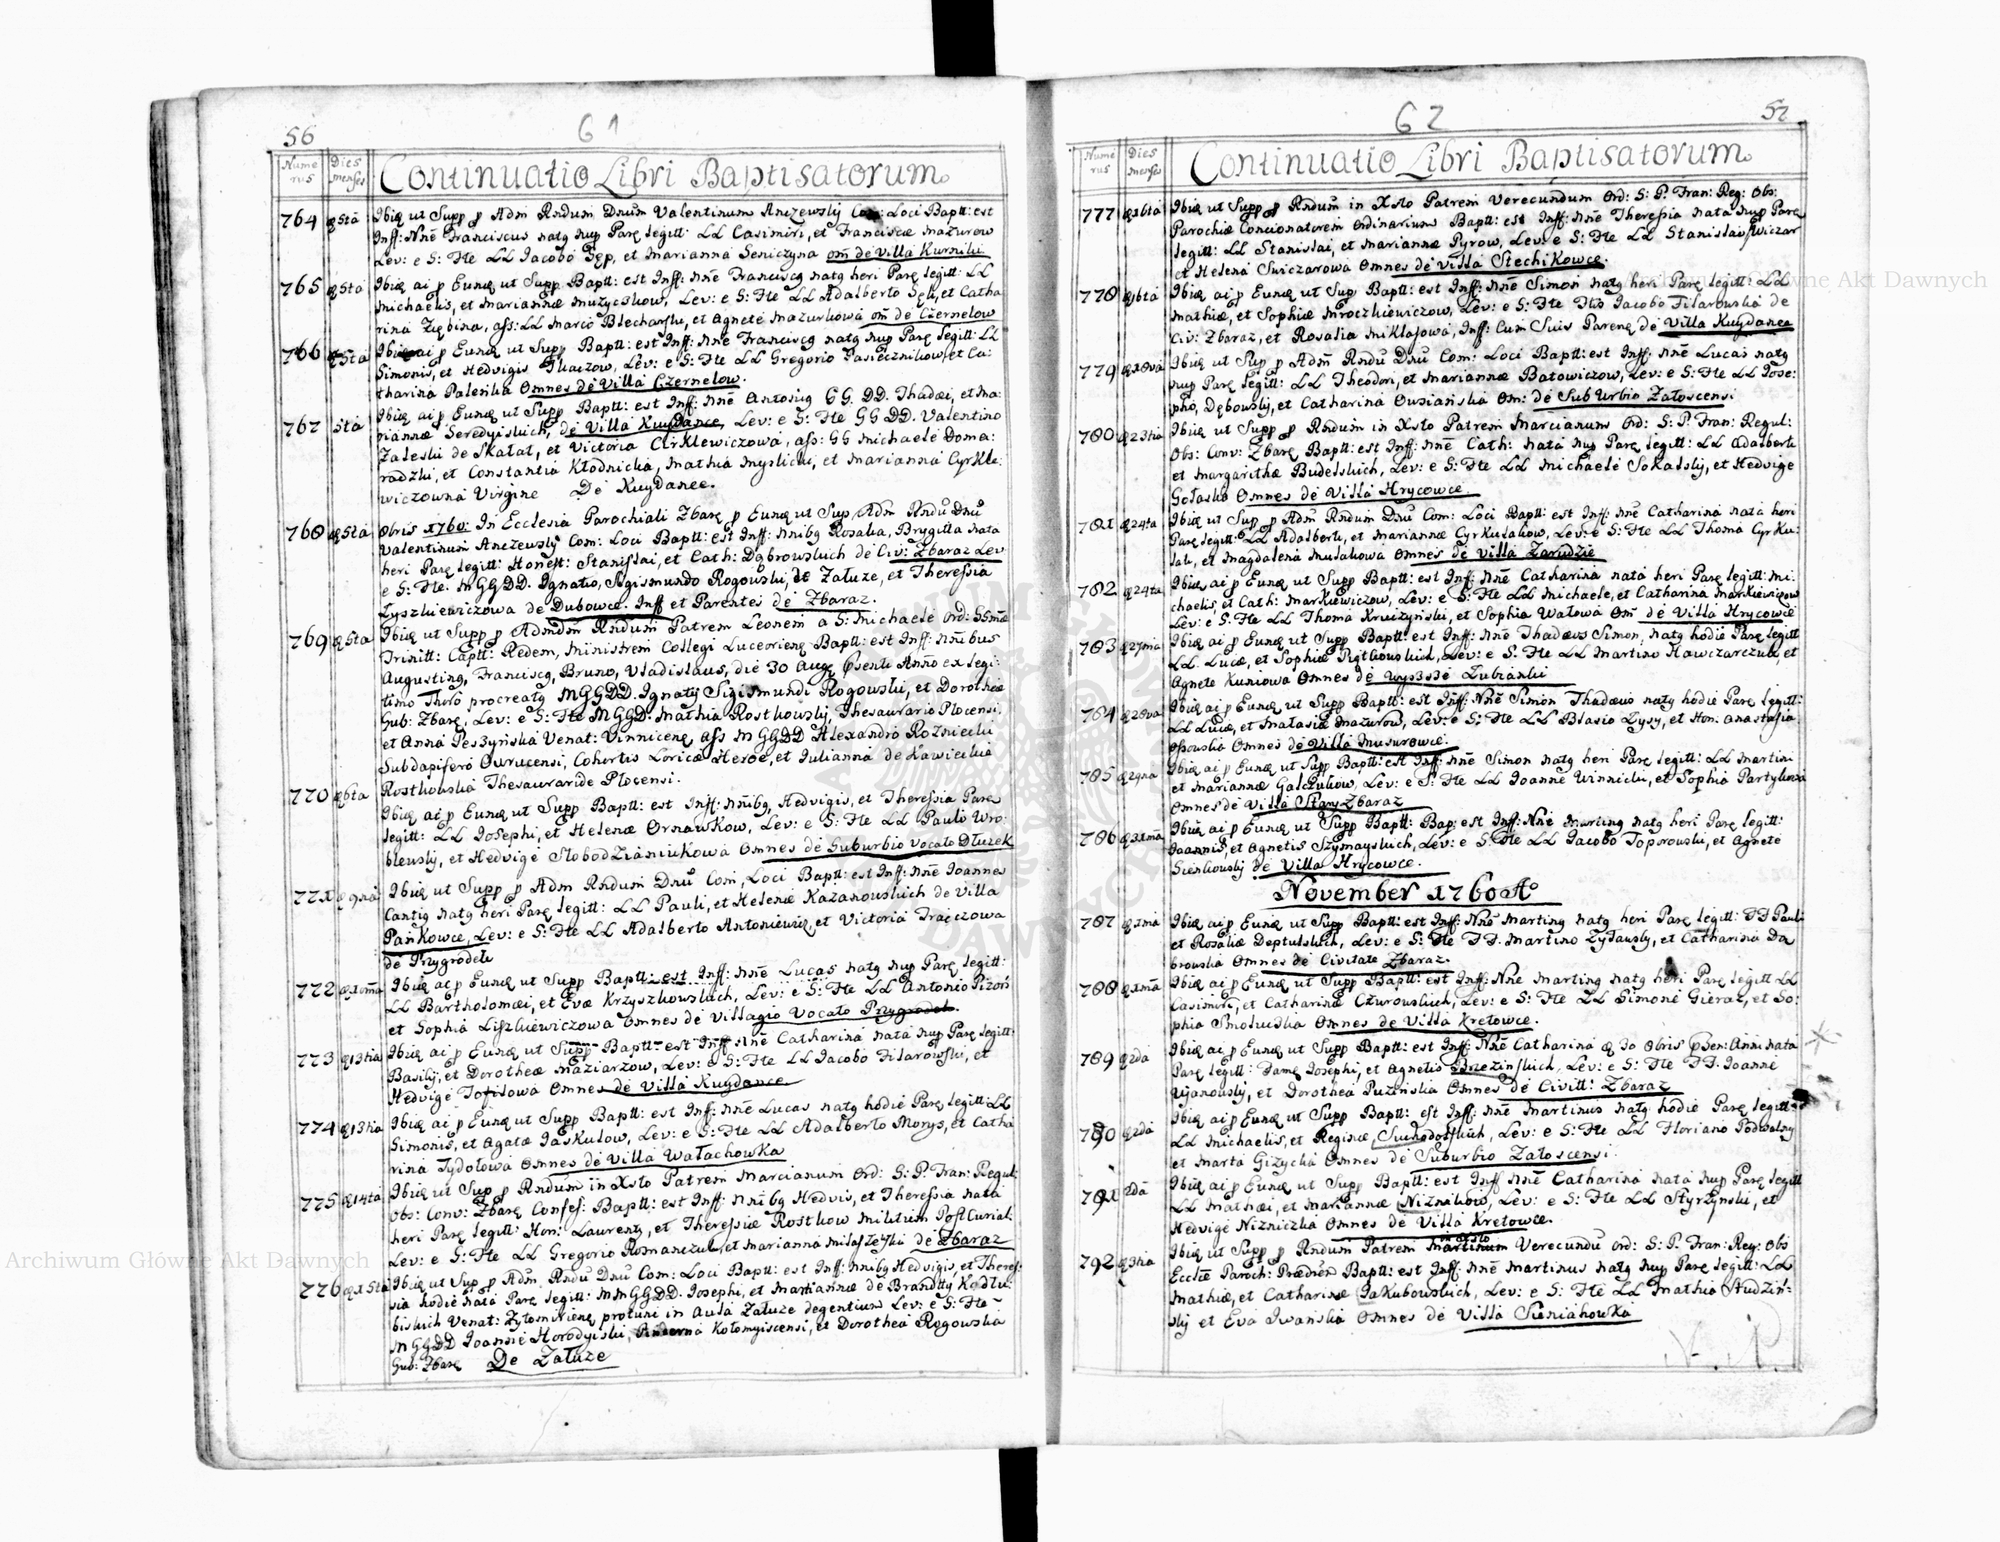 56
61
Nume
rus
Dies
menses
Continuatio Libri Baptisatorum
764 5ta Ibid ut Supp p Adm Rndum Dnum Valentinum Anczewsky Com: Loci Baptt: est
Inff: Nne Franciscus natq nup Parę legitt: LL Casimiri, et Franciscæ Mazurow
Lev: e S: Fte LL Jacobo Sęp, et Marianna Seniczyna om de Villa Kurniki
765 5ta Ibid ai p Eund ut Supp Baptt: est Inff: Nne Franciscq natq heri Parę legitt: LL
Michaelis, et Mariannæ Muzyczkow, Lev: e S: Fte LL Adalberto Sęk, et Catha
rina Zębina, ass: LL Marco Blecharsku, et Agnete Mazurkowa om de Czernelow
766 5ta Ibid ai p Eund ut Supp Baptt: est Inff: Nne Franciscq natq nup Parę legitt: LL
Simonis, et Hedvigis Tkaczow, Lev: e S: Fte LL Gregorio Pasiecznikow, et Ca:
tharina Paleńka Omnes de Villa Czernelow.
767 5ta Ibid ai p Eund ut Supp Baptt: est Inff: Nne Antoniq GG. DD. Thadæi, et Ma:
riannæ Seredyiskich, de Villa Kuydance, Lev: e S: Fte GG DD. Valentino
Zaleski de Skałat, et Victoria Cirklewiczowa, ass: GG Michaele Doma:
radzki, et Constantia Kłodnicka, Mathia Myslicki, et Marianna Cyrkle:
wiczowna Virgine De Kuydance.
768 5ta Obris 1760: In Ecclesia Parochiali Zbarę p Eund ut Sup Adm Rndu Dnu
Valentinum Anczewsky Com: Loci Baptt: est Inff: Nnibq Rosalia, Brygitta nata
heri Parę legitt: Honest: Stanislai, et Cath: Dąbrowskich de Civ: Zbaraz Lev
e S: Fte. M GG DD. Ignatio, Sigismundo Rogowski, de Załuze, et Theressia
Łyszkiewiczowa de Dubowce. Inff et Parentes de Zbaraz.
769 5ta Ibid ut Supp p Admdm Rndum Patrem Leonem a S: Michaele Ord: SSmæ
Trinitt: Captt: Redem, Ministrem Collegi Luceorienę Baptt: est Inff: Nnibus
Augustinq, Franciscq, Bruno, Vladislaus, die 30 Augę psenti Anno ex legi:
timo Thoro procreatq MGGDD. Ignatij Sigismundi Rogowski, et Dorotheæ
Gub: Zbarę, Lev: e S: Fte MGGD. Mathia Rostkowsky, Thesaurario Plocensi,
et Anna Peszyńska Venat: Vinnicenę, ass M GGDD Alexandro Rozniecki
Subdapifero Ovrucensi, Cohortis Loricæ Heroe, et Julianna de Kawieckie
Rostkowska Thesauraride Plocensi.
770 6ta Ibid ai p Eund ut Supp Baptt: est Inff: Nnibq, Hedvigis, et Theressia Parę
legitt: LL Josephi, et Helenæ Ornawkow, Lev: e S: Fte LL Pauli Wro:
blewsky, et Hedvige Slobodzianiukowa Omnes de Suburbio Vocato Dłuzek
771 9na Ibid ut Supp p Adm Rndum Dnu Com, Loci Baptt: est Inff: Nne Joannes
Cantiq natq heri Parę legitt: LL Pauli, et Helenæ Kazanowskich de Villa
Pańkowce, Lev: e S: Fte LL Adalberto Antoniewicz, et Victoria Traczowa
de Przygrodek
772 10ma Ibid ai p Eund ut Supp Baptt: est Inff: Nne Lucas natq nup Parę legitt:
LL Bartholomæi, et Evæ Krzyszkowskich, Lev: e S: Fte LL Antonio Pizoń
et Sophia Liszkiewiczowa Omnes de Villagio Vocato Przygrodek.
773 13tia Ibid ai p Eund ut Supp Baptt: est Inff: Nne Catharina nata nup Parę legitt:
Basilij, et Dorotheæ Maziarzow, Lev: e S: Fte LL Jacobo Filarowski, et
Hedvige Tofilowa Omnes de Villa Kuydance
774 13tia Ibid ai p Eund ut Supp Baptt: est Inff: Nne Lucas natq hodie Parę legitt: LL
Simonis, et Agatæ Jaskulow, Lev: e S: Fte LL Adalberto Morys, et Catha
rina Tydołowa Omnes de Villa Wałachowka
775 14ta Ibid ut Sup p Rndum in Xsto Patrem Marcianum Ord: S: P. Fran: Regul:
Obs: Conv: Zbarę Confes: Baptt: est Inff: Nnibq Hedvis, et Theressia nata
heri Parę legitt: Hon: Laurenti, et Theressiæ Rostkow militum PostCurial:
Lev: e S: Fte LL Gregorio Romanczuk, et Marianna de Zbaraz
776 15ta Ibid ut Sup p Adm, Rndu Dnu Com: Loci Baptt: est Inff: Nnibq Hedvigis, et Theres:
sia hodie nata Parę legitt: MM GG DD. Josephi, et Mariannæ de Brandtty Kodłu:
biskich Venat: ZytomNienę protunc in Aula Załuze degentium Lev: e S: Fte
M GGDD Joanne Horodyiski, Kołomyiscensi, et Dorothea Rogowska
Gub: Zbarę De Załuze
62
57
Nume
rus
Dies
menses
Continuatio Libri Baptisatorum
777 16ta Ibid ut Supp p Rndum in Xsto Patrem Verecundum Ord: S: P. Fran: Reg: Obs:
Parochiæ Concionatorem Ordinarium Baptt: est Inff: Nne Theressia nata nup Parę
legitt: LL Stanislai, et Mariannæ Pyrow, Lev: e S: Fte LL Stanislao Swiczar
et Helena Swiczarowa Omnes de Villa Stechikowce.
778 16ta Ibid ai p Eund ut Sup Baptt: est Inff: Nne Simon natq heri Parę legitt: LL
Mathiæ, et Sophiæ Mroczkiewiczow, Lev: e S: Fte Ftis Jacobo Filarowski de
Civ: Zbaraz, et Rosalia Miklasowa, Inff: Cum Suis Parenę de Villa Kuydance
779 18va Ibid ut Sup p Adm Rndu Dnu Com: Loci Baptt: est Inff: Nne Lucas natq
nup Parę legitt: LL Theodori, et Mariannæ Batowiczow, Lev: e S: Fte LL Jose:
pho, Dębowsky, et Catharina Owsiańska Om: de SubUrbio Załoscensi
780 23tia Ibid ut Supp p Rndum in Xsto Patrem Marcianum Ord: S: P. Fran: Regul:
Obs: Conv: Zbarę Baptt: est Inff: Nne Cath: nata nup Parę legitt: LL Adalberti
et Margarithæ Budelskich, Lev: e S: Fte LL Michaele Sokalsky, et Hedvige
Gołaska Omnes de Villa Hrycowce.
781 24ta Ibid ut Sup p Adm Rndum Dnu Com: Loci Baptt: est Inff: Nne Catharina nata heri
Parę legitt: LL Adalberti, et Mariannæ Cyrkulakow, Lev: e S: Fte LL Thoma Cyrku:
lak, et Magdalena Musakowa Omnes de Villa Zarudzie
782 24ta Ibid, ai p Eund ut Sup Baptt: est Inff: Nne Catharina nata heri Parę legitt: Mi:
chaelis, et Cath: Markiewiczow, Lev: e S: Fte LL Michaele, et Catharina Markiewiczow
Lev: e S: Fte LL Thoma Kruczyński, et Sophia Watowa Om de Villa Hrycowce
783 27ma Ibid ai p Eund ut Supp Baptt: est Inff: Nne Thadæus Simon, natq hodie Parę legitt
LL. Lucæ, et Sophiæ Piątkowskich, Lev: e S: Fte LL Martino Hawczarczuk, et
Agnete Kuniowa Omnes de Wyszsze Łubianki
784 28va Ibid ai p Eund ut Supp Baptt: est Inff: Nne Simon Thadæus natq hodie Parę legitt:
LL Lucæ, et Matasiæ Mazurow, Lev: e S: Fte LL Blasio Łysy, et Hon: Anastasia
Ossowska Omnes de Villa Musurowce.
785 29na Ibid ai p Eund ut Supp Baptt: est Inff: Nne Simon natq heri Parę legitt: LL Martini
et Mariannæ Gałczukow, Lev: e S: Fte LL Joanne Winnicki, et Sophia Partykowa
Omnes de Villa Stary Zbaraz
786 31ma Ibid ai p Eund ut Supp Baptt: Bap: est Inff: Nne Martinq natq heri Parę legitt:
Joannis, et Agnetis Szymayskich, Lev: e S: Fte LL Jacobo Toporowski, et Agnete
Sienkowsky de Villa Hrycowce.
November 1760 Ao
787 1ma Ibid ai p Eund ut Supp Baptt: est Inff: Nne Martinq natq heri Parę legitt: FF Pauli
et Rosaliæ Deptulskich, Lev: e S: Fte FF. Martino Zytawsky, et Catharina Da
browska Omnes de Civitate Zbaraz.
788 1ma Ibid ai p Eund ut Supp Baptt: est Inff: Nne Martinq natq heri Parę legitt LL
Casimiri, et Catharinæ Czurowskich, Lev: e S: Fte LL Simone Gieraz, et So:
phia Smolucka Omnes de Villa Kretowce.
789 2da Ibid ai p Eund ut Supp Baptt: est Inff: Nne Catharina 30 Obris pSen: Anni nata
Parę legitt: Famę Josephi, et Agnetis Brzezinskich, Lev: e S: Fte FF. Joanne
Uyanowsky, et Dorothea Puzeńska Omnes de Civitt: Zbaraz
790 2da Ibid ai p Eund ut Supp Baptt: est Inff: Nne Martinus natq hodie Parę legitt:
LL Michaelis, et Reginæ, Suchodolskich, Lev: e S: Fte LL Floriano Podwalny
et Marta Gizycka Omnes de Suburbio Załoscensi.
791 2da Ibid ai p Eund ut Supp Baptt: est Inff Nne Catharina nata nup Parę legitt
LL Mathæi, et Mariannæ Niznikow, Lev: e S: Fte LL Styrzynski, et
Hedvige Nizniczka Omnes de Villa Kretowce.
792 3tia Ibid ut Supp p Rndum Patrem in Xsto Verecundu Ord: S: P. Fran: Reg: Obs
Eccliæ Paroch: Prædren Baptt: est Inff: Nne Martinus natq nup Parę legitt: LL
Mathiæ, et Catharinæ Jakubowskich, Lev: e S: Fte LL Mathia Studziń:
sky et Eva Iwanska Omnes de Villa Sieniahowka
Archiwum Główne Akt Dawnych
Archiwum Główne Akt Dawnych